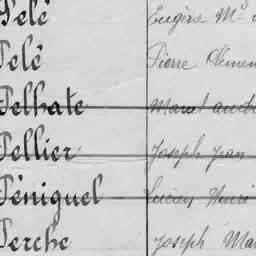 Pelé Eugène M
Pelé Pierre Clément
Pelhate Marcel André
Pellier Joseph Jean
Péniguel Lucien Henri
Perche Joseph Mar